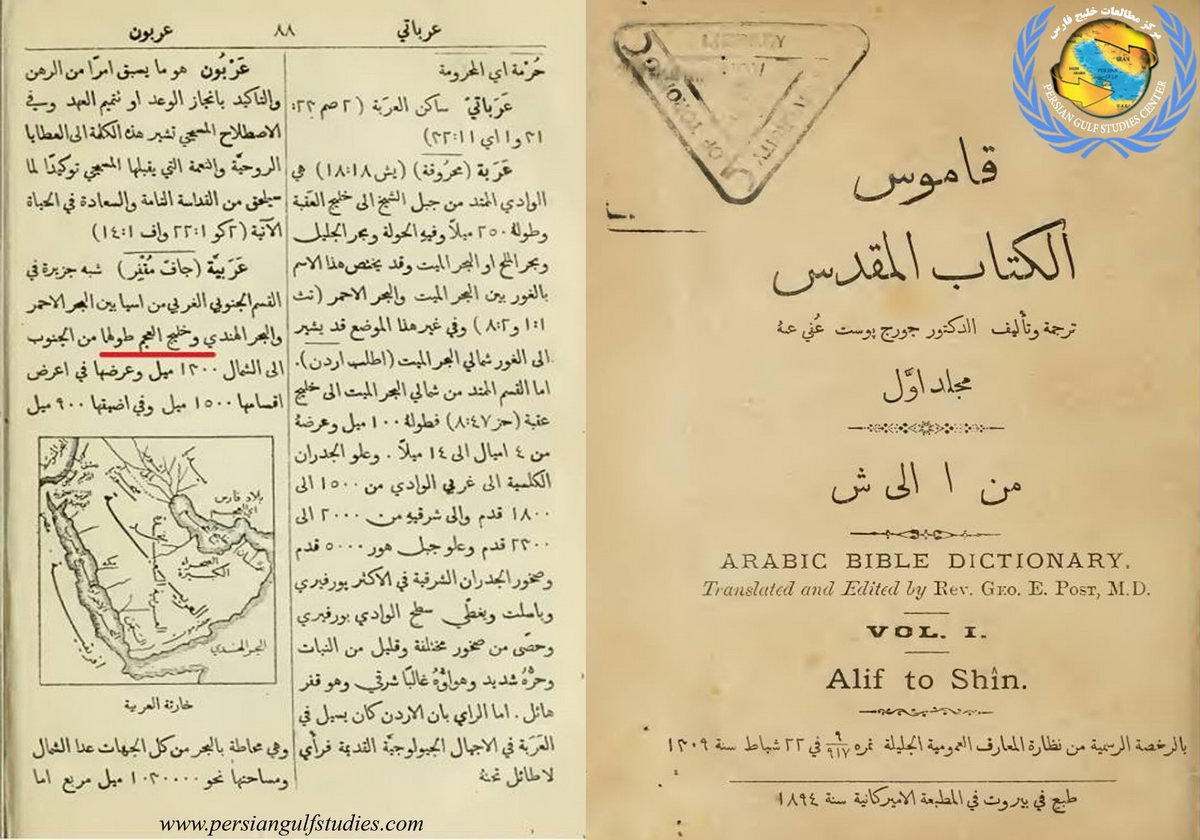 مركز مطالعات خليج فارس
PERSIAN GULF STUDIES CENTER
LIBRARY
قاموس
الكتاب المقدس
ترجمة وتأليف الدكتور جورج پوست عُني عنهُ
مجلد اوَّل
من ا الى ش
ARABIC BIBLE DICTIONARY.
Translated and Edited by REV. GEO. E. POST, M.D.
VOL. I.
Alif to Shîn.
بالرخصة الرسمية من نظارة المعارف العمومية الجليلة نمره ٩/٩١٧ في ٢٢ شباط سنة ١٣٠٩
طبع في بيروت في المطبعة الاميركانية سنة ١٨٩٤
عرباتي ٨٨ عربون
حُرْمة اي المحرومة
عَرَباتيّ ساكن العربَة (٢ صم ٢٣:
٢١ و١ اي ١١:٢٢)
عَرَبة (محروقة) (يش ١٨:١٨) هي
الوادي الممتد من جبل الشيخ الى خليج العقبة
وطولهُ ٢٥٠ ميلًا وفيهِ الحولة وبحر الجليل
وبحر اللح او البحر الميت وقد يختص هذا الاسم
بالغور بين البحر الميت والبحر الاحمر (تث
١:١ و٨:٢) وفي غير هذا الموضع قد يشير
الى الغور شمالي البحر الميت (اطلب اردن).
اما القسم الممتد من شمالي البحر الميت الى خليج
عقبة (حز ٨:٤٧) فطولهُ ١٠٠ ميل وعرضهُ
من ٤ اميال الى ١٤ ميلًا. وعلو الجدران
الكلسية الى غربي الوادي من ١٥٠٠ الى
١٨٠٠ قدم والى شرقيهِ من ٢٠٠٠ الى
٢٣٠٠ قدم وعلو جبل هور ٥٠٠٠ قدم
وصخور الجدران الشرقية في الاكثر پورفيري
وباسلت ويغطّي سطح الوادي بورفيري
وحصّى من صخور مختلفة وقليل من النبات
وحرُّهُ شديد وهواؤُهُ غالبًا شرقي وهو قفر
هائل. اما الراي بان الاردن كان يسيل في
العَرَبَة في الاجمال الجيولوجيَّة القديمة فرأي
لاطائل تحتهُ
عَرْبُون هو ما يسبق امرًا من الرهن
والتاكيد بانجاز الوعد او تتميم العهد وفي
الاصطلاح المسيحي تشير هذه الكلمة الى العطايا
الروحيَّة والنعمة التي يقبلها المسيحي توكيدًا لما
سيلحق من القداسة التامة والسعادة في الحياة
الآتية (٢كو ٢٢:١ واف ١٤:١)
عَرَبيَّة (جافّ مُقْفِر) شبه جزيرة في
القسم الجنوبي الغربي من اسيا بين البحر الاحمر
والبحر الهندي وخليج العجم طولها من الجنوب
الى الشمال ١٣٠٠ ميل وعرضها في اعرض
اقسامها ١٥٠٠ ميل وفي اضيقها ٩٠٠ ميل
بلاد فارس
الصحراء
الكبيرة
العربية
البحر الهندي
افريقية
خارتة العربية
وهي محاطة بالبحر من كل الجهات عدا الشمال
ومساحتها نحو ١٠٣٠٠٠٠ ميل مربع اما
www.persiangulfstudies.com